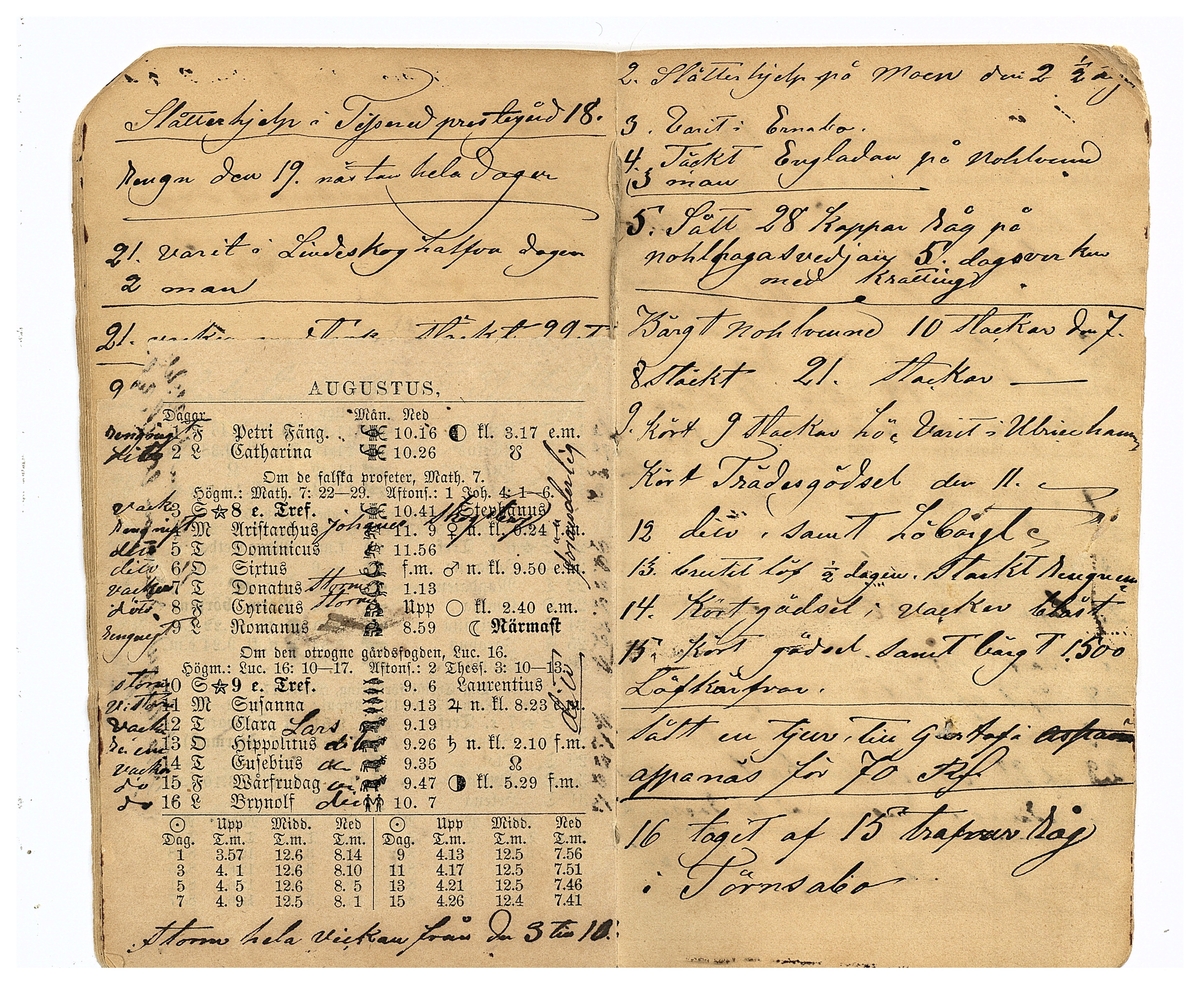 Slåtterhjelp i prestegård 18.
Rengn den 19. nästan hela dagen
21. varit i Lindeskog halfva dagen
2 man
21.
9
AUGUSTUS,
Dagar Mån. Ned
1 F Petri Fäng. 10.16 kl. 3.17 e.m.
2 L Catharina 10.26
Om de falska profeter, Math. 7.
Högm.: Math. 7: 22—29. Aftons.: 1 Joh. 4: 1—6.
vack 3 S 8 e. Tref. 10.41 Stephanus
4 M Aristarchus 11. 9 ♀ n. kl. 6.24 f.m.
dito 5 T Dominicus 11.56
dito 6 O Sixtus f.m. ♂ n. kl. 9.50 e.m.
vacker 7 T Donatus storm 1.13
dito 8 F Cyriacus storm Upp kl. 2.40 e.m.
9 L Romanus 8.59 ☾ Närmast
föränderlig
Om den otrogne gårdsfogden, Luc. 16.
Högm.: Luc. 16: 10—17. Aftons.: 2 Thess. 3: 10—13.
storm 10 S 9 e. Tref. 9. 6 Laurentius
11 M Susanna 9.13 ♃ n. kl. 8.23 f.m.
vack 12 T Clara Lars 9.19
13 O Hippolitus 9.26 ♄ n. kl. 2.10 f.m.
vacker 14 T Eusebius 9.35
do 15 F Wårfrudag 9.47 kl. 5.29 f.m.
do 16 L Brynolf 10. 7
dito
☉ Upp Midd. Ned ☉ Upp Midd. Ned
Dag. T.m. T.m. T.m. Dag. T.m. T.m. T.m.
1 3.57 12.6 8.14 9 4.13 12.5 7.56
3 4. 1 12.6 8.10 11 4.17 12.5 7.51
5 4. 5 12.6 8. 5 13 4.21 12.5 7.46
7 4. 9 12.5 8. 1 15 4.26 12.4 7.41
storm hela veckan från den 3 till 10.
2. Slåtterhjelp på Moen den 2 ½
3. Varit i Ernabo.
4. Täckt Engladan på Nohlvend
(3 man
5. Sått 28 Kappar Råg på
5. dagsverken
med
Bärgt 10 stackar den 7.
8 stäckt 21. stackar —
9. Kört 9 stackar hö, Varit i Ulricehamn
Kört Trädesgödsel den 11.
12 dito, samt höbärgt
13. brutit löf ½ dagen. Stackt
14. Kört gödsel, vacker blåst
15. Kört gödsel samt bärgt 1,500
Löfkärfvar.
sålt en tjur, till Gustaf i
appanäs för 70 Rdr
16 tagit af 15 travar Råg
i Törnsabo